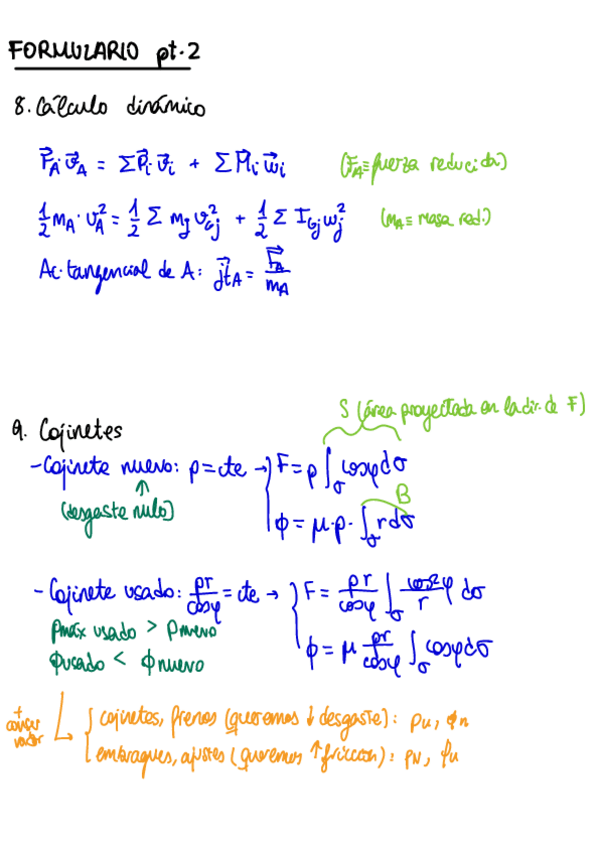 FORMULARIO pt.2
8. Cálculo dinámico
F⃗_A v⃗_A = ΣP⃗_i v⃗_i + ΣM⃗_i ω⃗_i (F_A ≡ fuerza reducida)
½ m_A · v_A² = ½ Σ m_j v_Gj² + ½ Σ I_Gj ω_j² (m_A ≡ masa red.)
Ac. tangencial de A: j⃗t_A = F⃗_A / m_A
S (área proyectada en la dir. de F)
9. Cojinetes
- Cojinete nuevo: p = cte → { F = p ∫_σ cosφ dσ
(desgaste nulo) B
ϕ = μ · p · ∫_σ r dσ
- Cojinete usado: pr/cosφ = cte → { F = pr/cosφ ∫_σ cos²φ/r dσ
pmáx usado > pnuevo
ϕ = μ pr/cosφ ∫_σ cosφ dσ
ϕusado < ϕnuevo
{ cojinetes, frenos (queremos ↓ desgaste): pu, ϕn
embragues, ajustes (queremos ↑ fricción): pN, ϕu